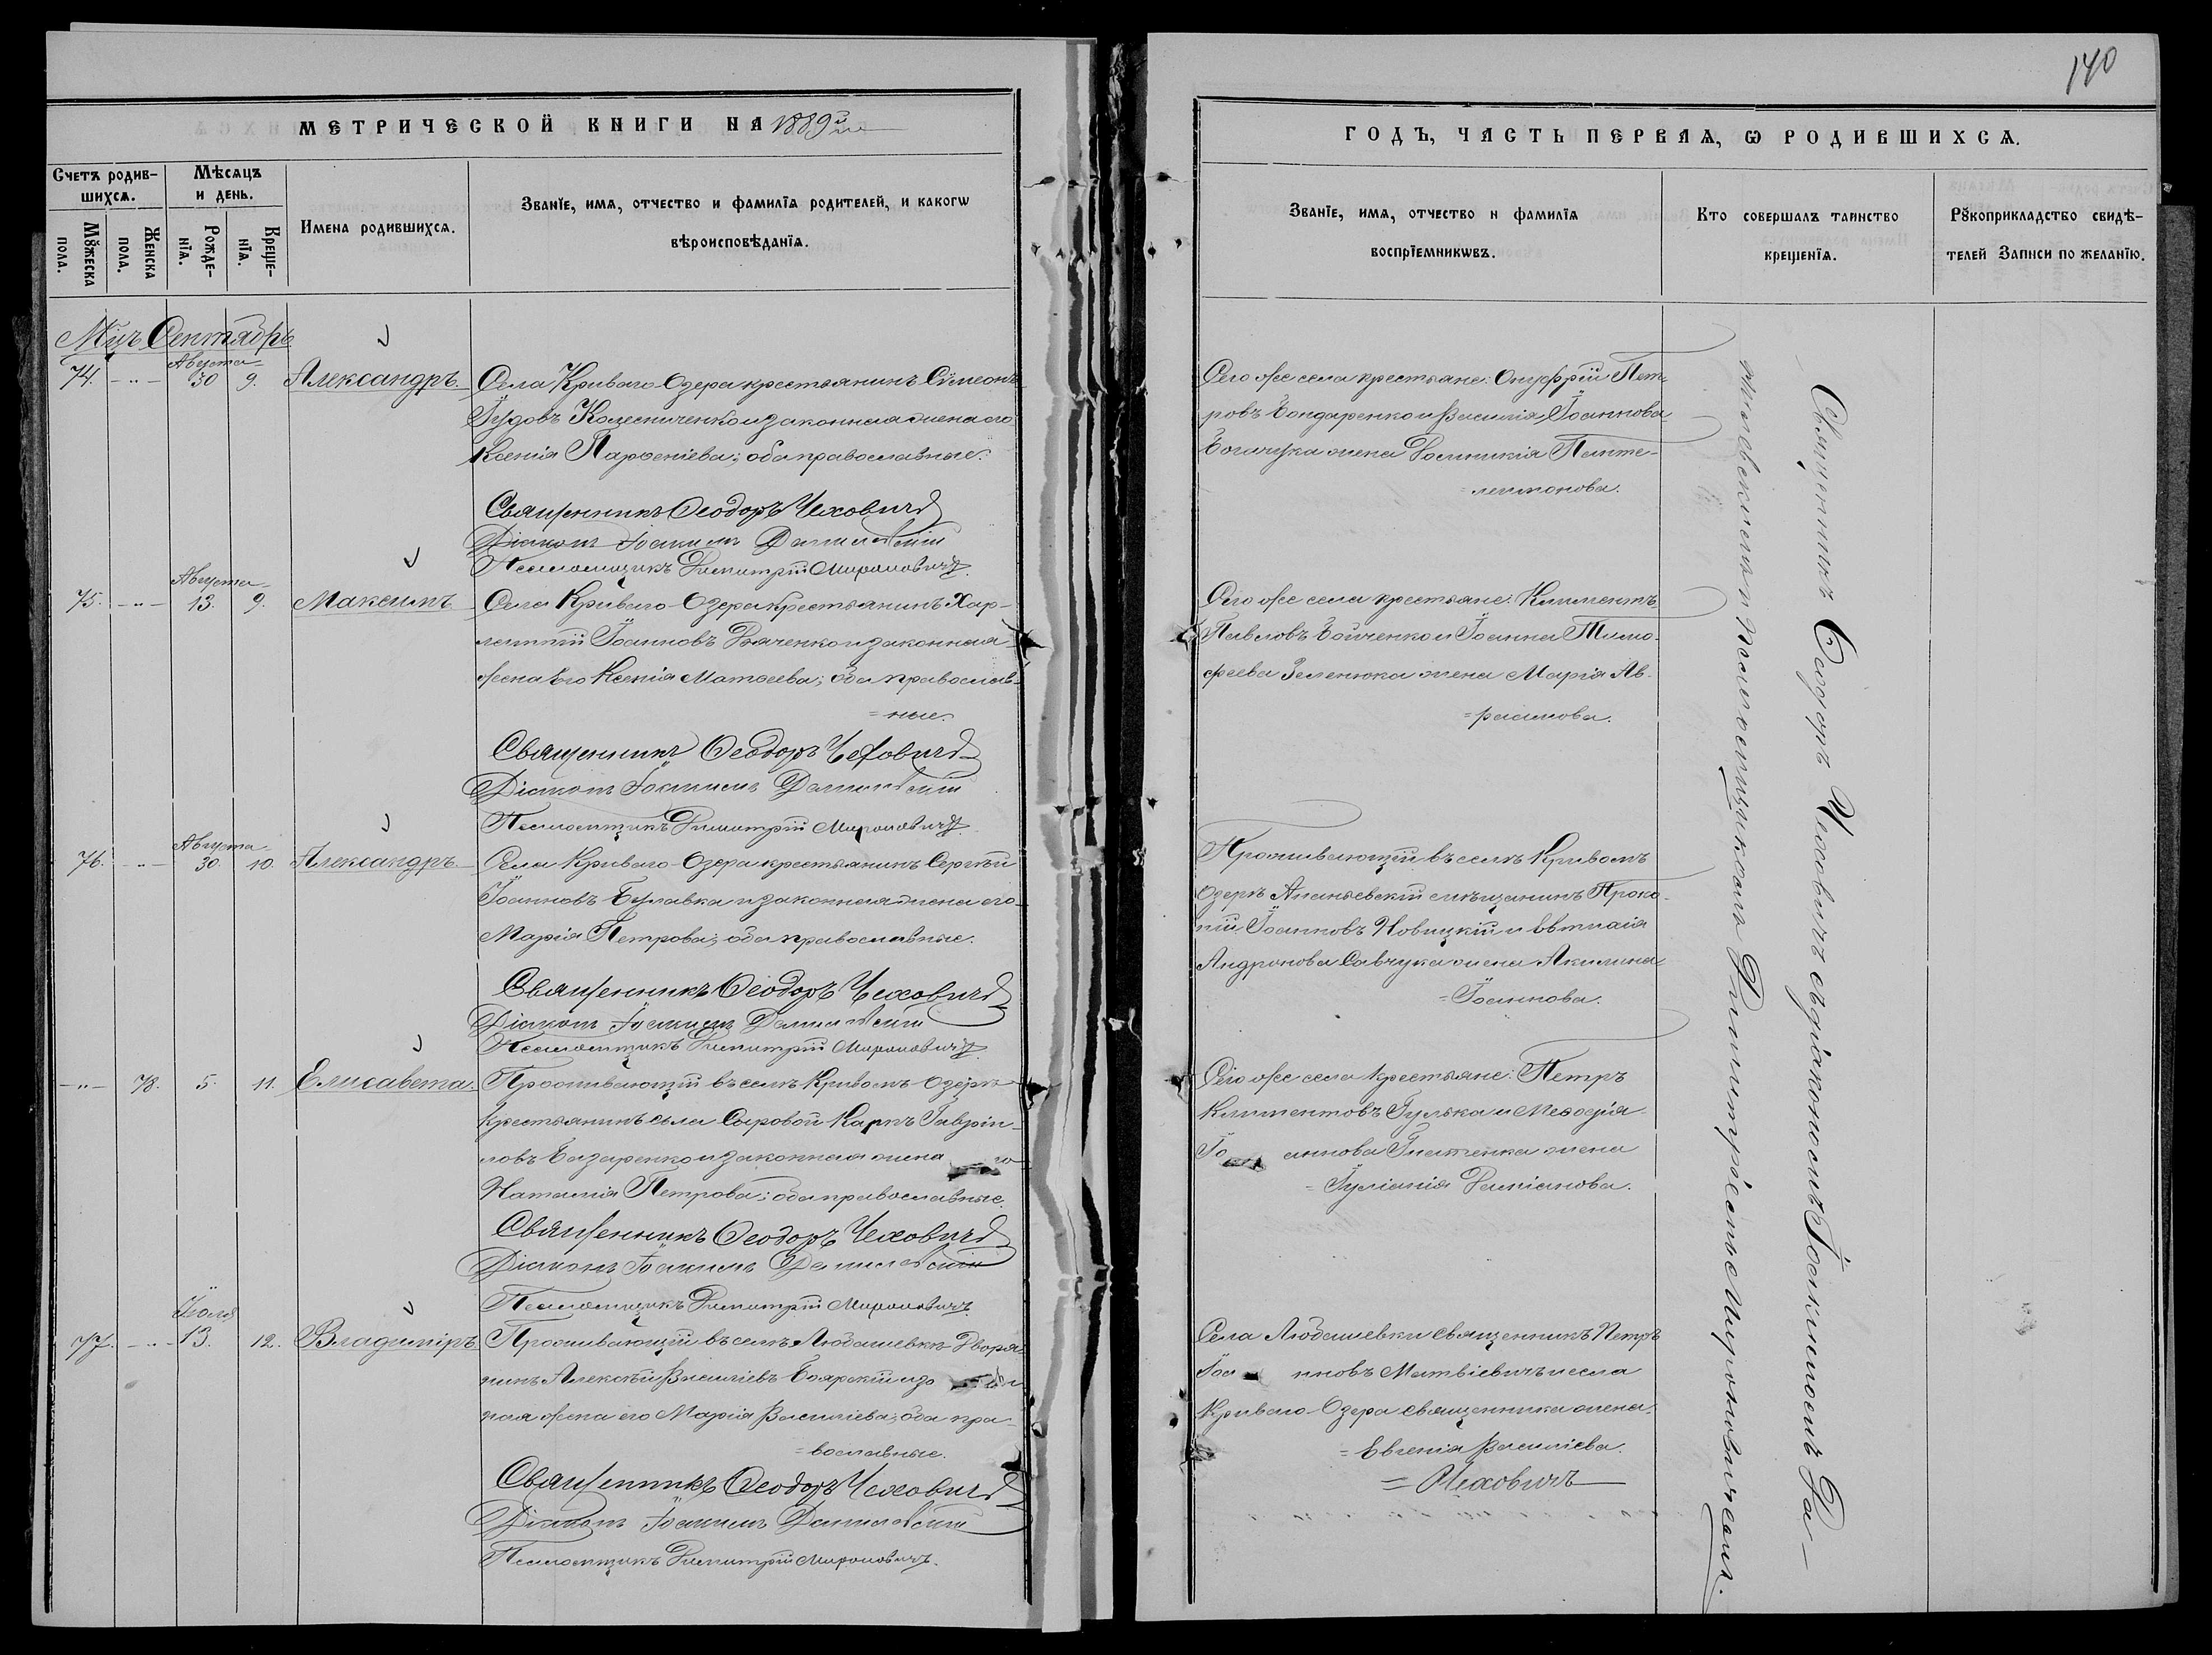 140
МЕТРИЧЕСКОЙ КНИГИ НА 1889й
ГОДЪ, ЧАСТЬ ПЕРВАѦ, Ѡ РОДИВШИХСѦ.
Счетъ родив-
шихсѧ.
Мѣсѧцъ
и день.
Мꙋжеска
пола.
Женска
пола.
Рожде-
нїѧ.
Креще-
нїѧ.
Имена родившихсѧ.
Званїе, имѧ, отчество и фамилїѧ родителей, и какогѡ
вѣроисповѣданїѧ.
Званїе, имѧ, отчество и фамилїѧ
воспрїемникѡвъ.
Кто совершалъ таинство
крещенїѧ.
Рꙋкоприкладство свидѣ-
телей Записи по желанїю.
Мцъ Сентябрь
Августа
74. -"- 30 9. Александръ
Села Криваго-Озера крестьянинъ Сѵмеонъ
Іудовъ Колесниченко и законная жена его
Ксенія Парѳеніева; оба православные.
Священникъ Ѳеодоръ Чеховичъ
Діаконъ Іоакимъ Данилевскій
Псаломщикъ Димитрій Мироновичъ
Сего же села крестьяне: Онуфрій Пет-
ровъ Бондаренко и Василія Іоаннова
жена Домникія Панте-
леимонова.
Августа
75. -"- 13. 9. Максимъ
Села Криваго-Озера крестьянинъ Хар-
лампій Іоанновъ Дяченко и законная
жена его Ксенія Матѳеева; оба православ-
=ные.
Священникъ Ѳеодоръ Чеховичъ
Діаконъ Іоакимъ Данилевскій
Псаломщикъ Димитрій Мироновичъ
Сего же села крестьяне: Климентъ
Павловъ Бойченко и Іоанна Тимо-
феева Зеленюка жена Марія Ав-
=раамова.
Августа
76. -"- 30. 10. Александръ
Села Криваго-Озера крестьянинъ Сергѣй
Іоанновъ Булавка и законная жена его
Марія Петрова; оба православные.
Священникъ Ѳеодоръ Чеховичъ
Діаконъ Іоакимъ Данилевскій
Псаломщикъ Димитрій Мироновичъ
Проживающій въ селѣ Кривомъ
Озерѣ Ананьевскій мѣщанинъ Проко-
пій Іоанновъ Новицкій и
Андронова Савчука жена Акилина
=Іоаннова.
-"- 78. 5. 11. Елисавета
Проживающій въ селѣ Кривомъ-Озерѣ
крестьянинъ села Сыровой Карпъ Гавріи-
ловъ Базаренко и законная жена его
Наталія Петрова; оба православные.
Священникъ Ѳеодоръ Чеховичъ
Діаконъ Іоакимъ Данилевскій
Псаломщикъ Димитрій Мироновичъ
Сего же села крестьяне: Петръ
Климентовъ Гулька и Меѳодія
Іоаннова Гнатенка жена
=Іуліанія Даміанова.
Іюля
77. -"- 13. 12. Владиміръ
Проживающій въ селѣ Любашевкѣ Дворя-
нинъ Алексѣй Василіевъ Боярскій и за
ная жена его Марія Василіева; оба пра-
=вославные.
Священникъ Ѳеодоръ Чеховичъ
Діаконъ Іоакимъ Данилевскій
Псаломщикъ Димитрій Мироновичъ.
Села Любашевки священникъ Петръ
Іоанновъ Матвіевичъ и села
Криваго-Озера священника жена
=Евгенія Василіева
=Чеховичъ
Священникъ Ѳеодоръ Чеховичъ съ діакономъ Іоакимомъ Да-
нилевскимъ и псаломщикомъ Димитріемъ Мироновичемъ.